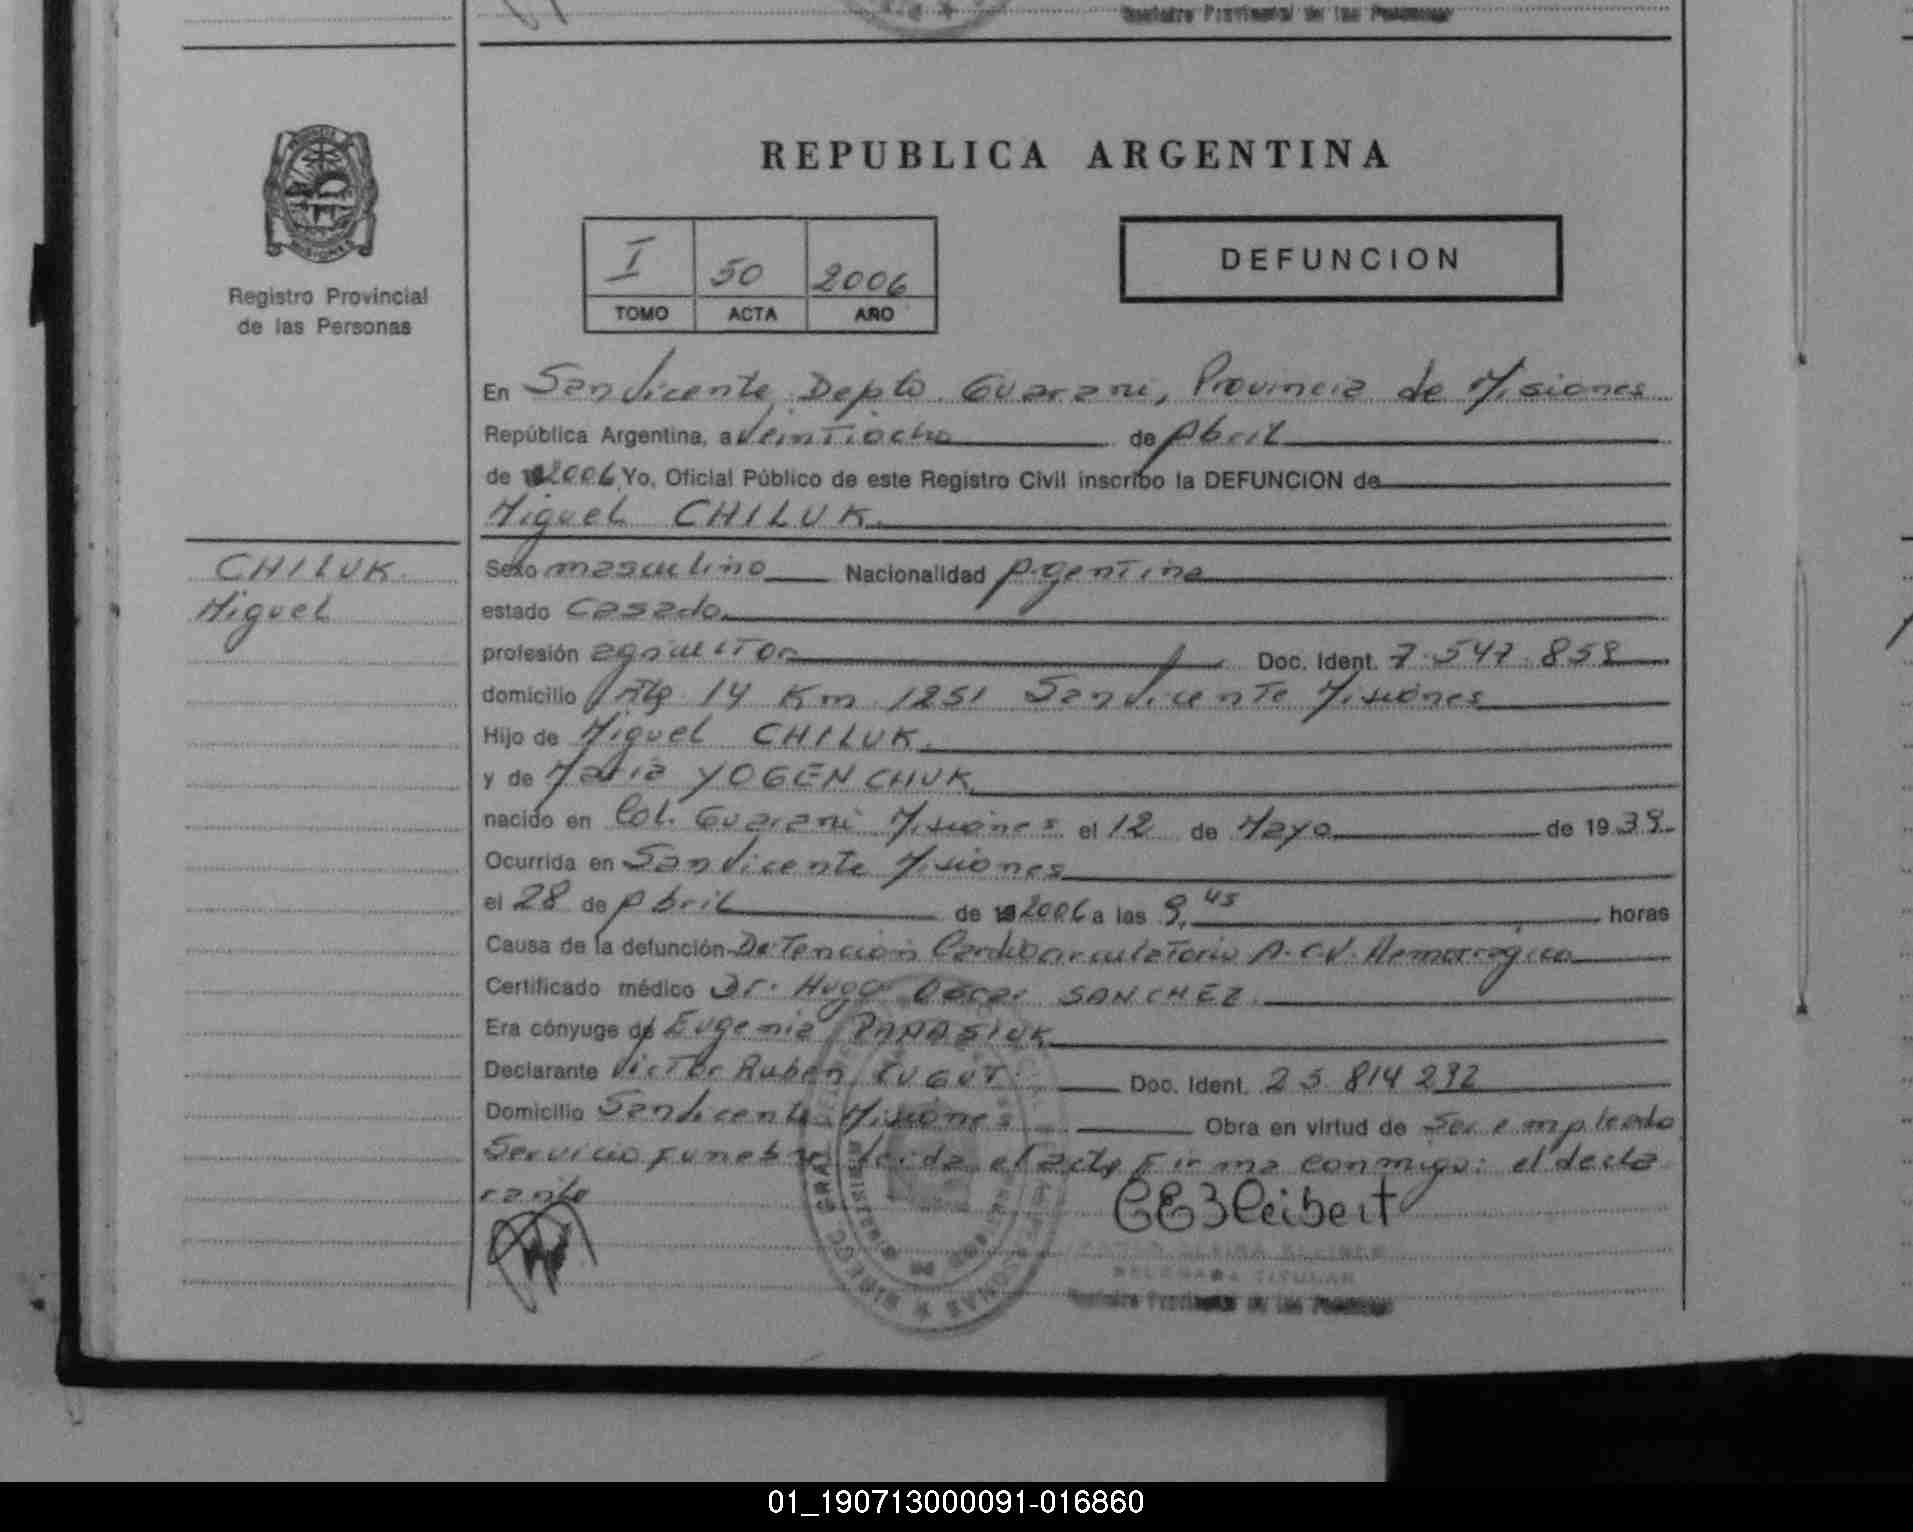 Registro Provincial de las Personas
REPUBLICA ARGENTINA
I 50 2006
TOMO ACTA AÑO
DEFUNCION
Registro Provincial
de las Personas
En San Vicente Depto Guarani, Provincia de Misiones
República Argentina, a Veintiocho de Abril
de 2006 Yo, Oficial Público de este Registro Civil inscribo la DEFUNCION de
Miguel CHILUK
CHILUK
Miguel
Sexo masculino Nacionalidad Argentina
estado Casado
profesión agricultor Doc. Ident. 7.547.858
domicilio 14 Km 1251 San Vicente Misiones
Hijo de Miguel CHILUK
y de Maria YOGENCHUK
nacido en Col. Guarani Misiones el 12 de Mayo de 1939
Ocurrida en San Vicente Misiones
el 28 de Abril de 2006 a las 9,45 horas
Causa de la defunción Detencion Cardiocirculatorio A.C.V. Hemorragico
Certificado médico Dr. Hugo Oscar SANCHEZ
Era cónyuge de Eugenia PANASIUK
Declarante Victor Ruben Doc. Ident. 25.814292
Domicilio San Vicente Misiones Obra en virtud de Ser empleado
Servicio Funebre leida el acta Firma conmigo: el decla
rante
Registro Provincial de las Personas
01_190713000091-016860